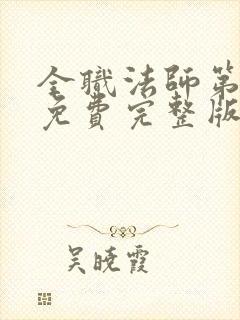 全職法師第
免費完整版
吴晓霞